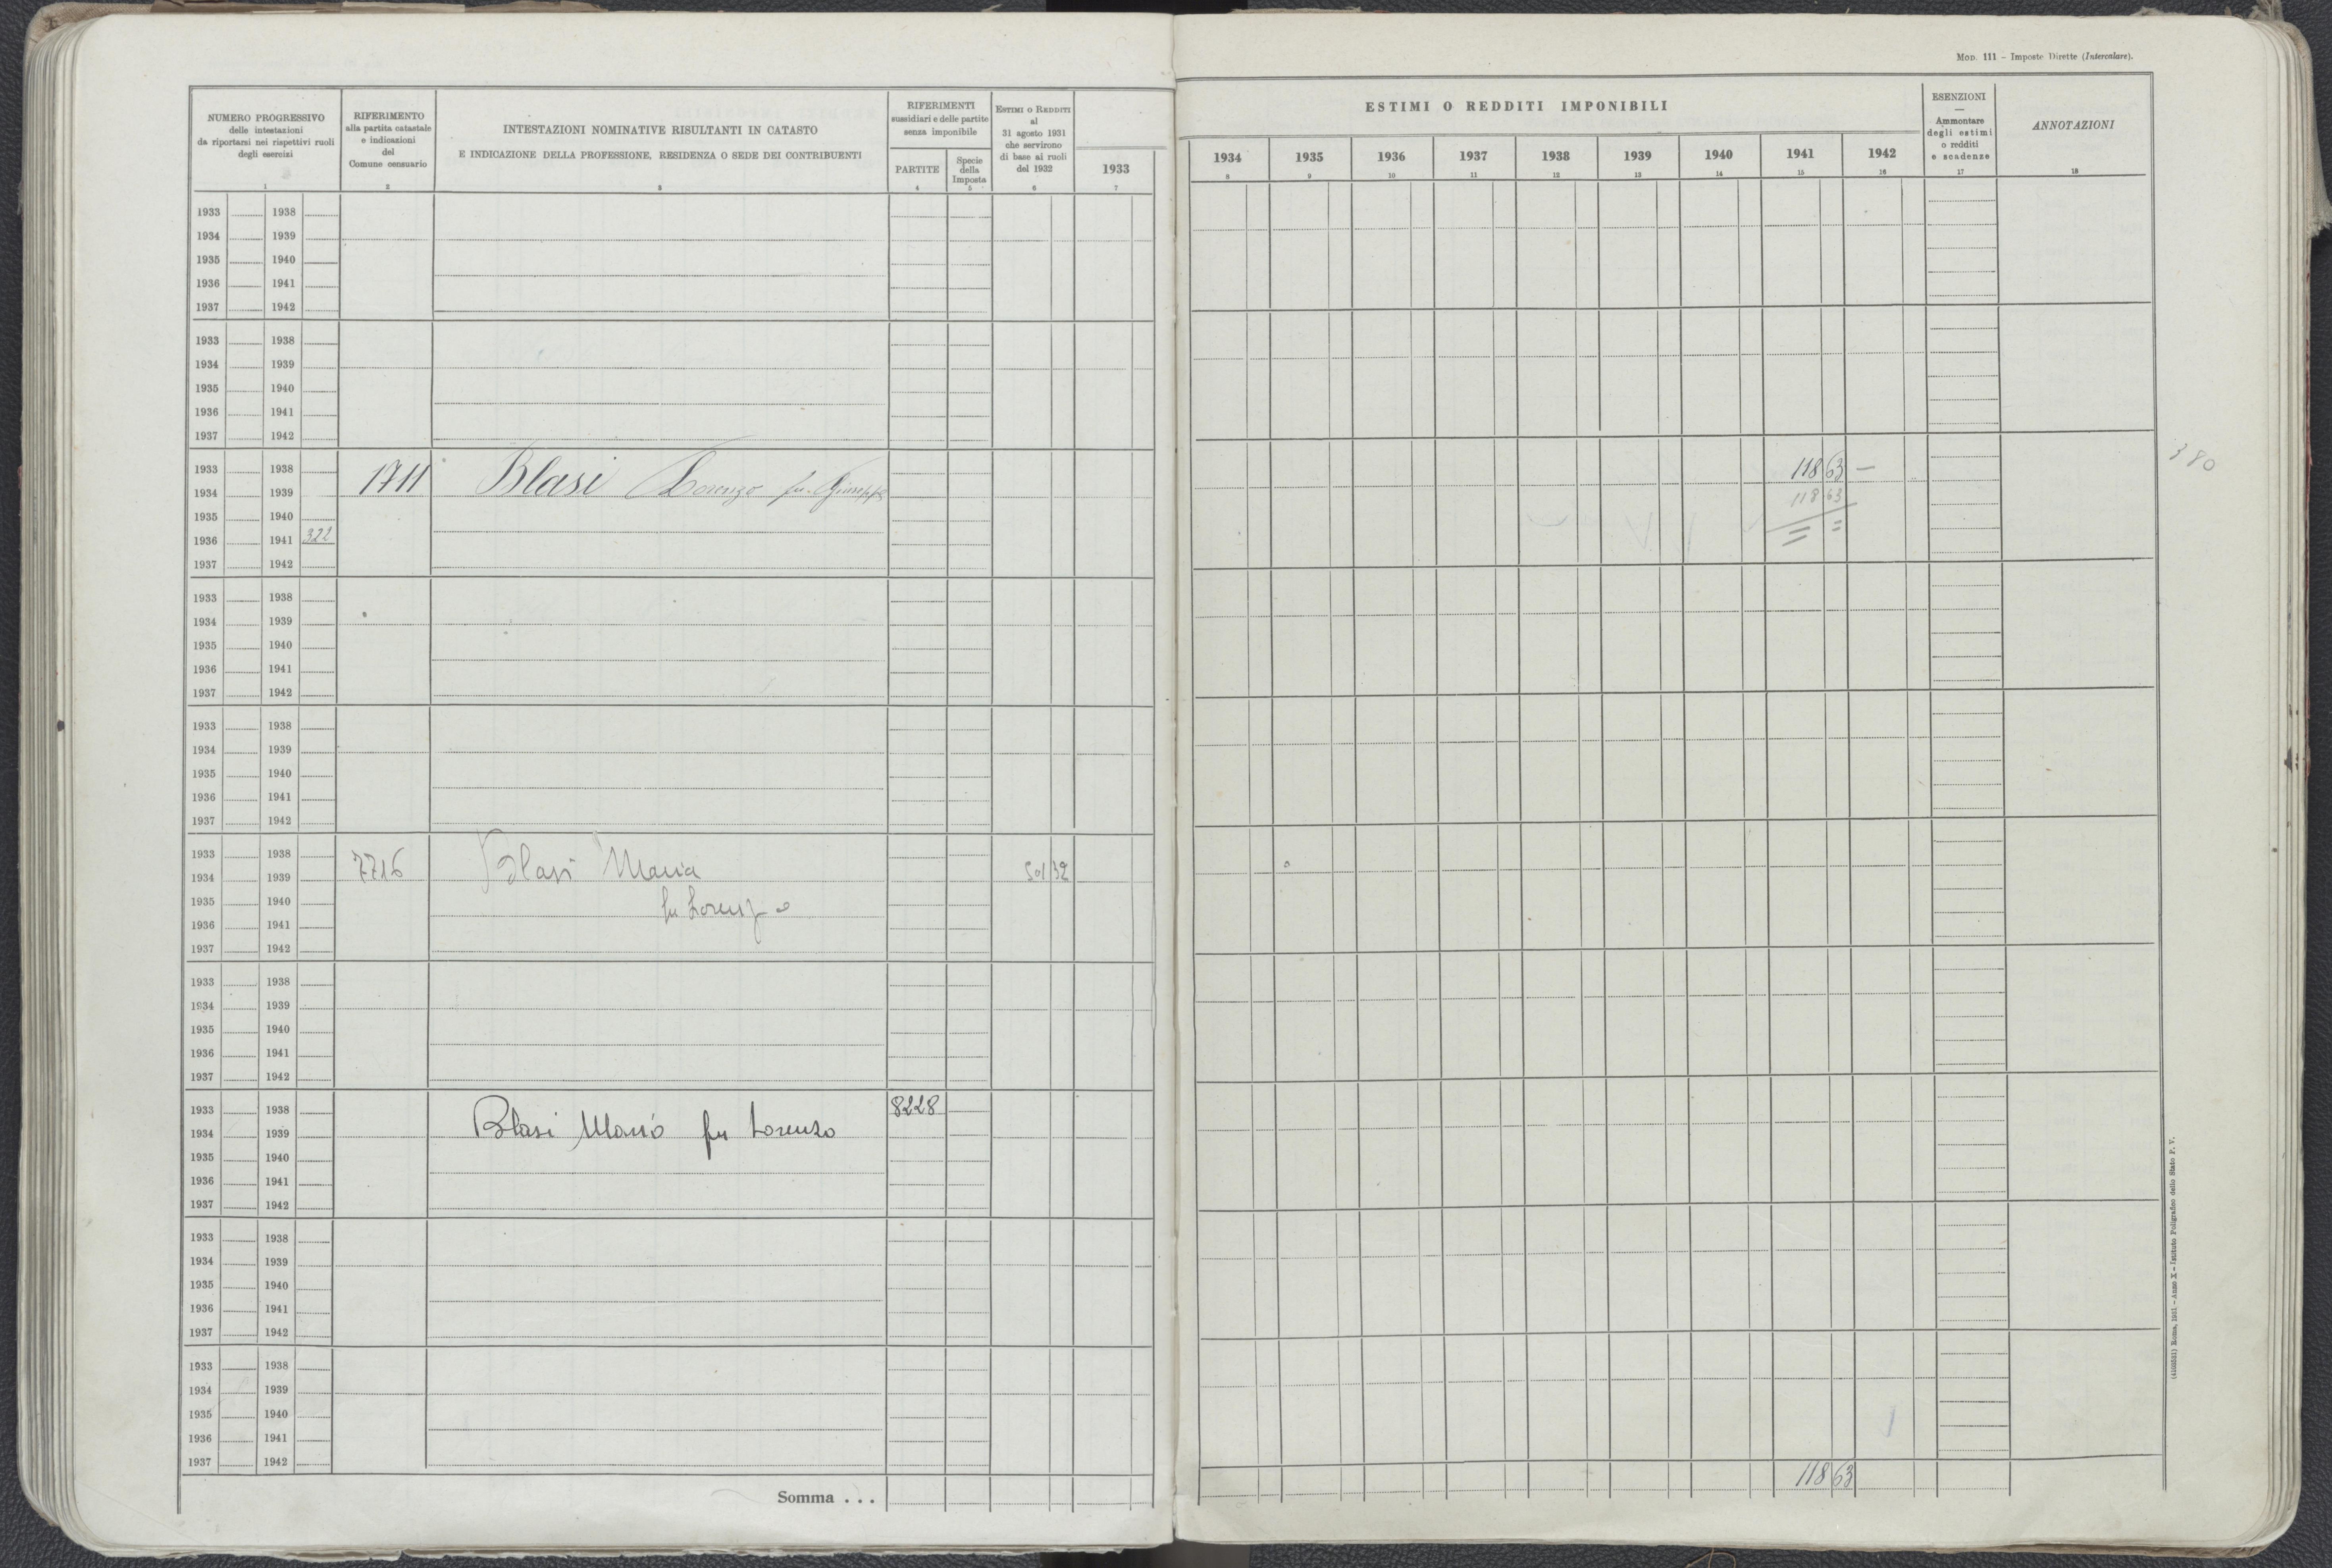 Mod. 111 - Imposte Dirette (Intercalare).
NUMERO PROGRESSIVO
delle intestazioni
da riportarsi nei rispettivi ruoli
degli esercizi
1
RIFERIMENTO
alla partita catastale
e indicazioni
del
Comune censuario
2
INTESTAZIONI NOMINATIVE RISULTANTI IN CATASTO
E INDICAZIONE DELLA PROFESSIONE, RESIDENZA O SEDE DEI CONTRIBUENTI
3
RIFERIMENTI
sussidiari e delle partite
senza imponibile
PARTITE
4
Specie
della
Imposta
5
ESTIMI O REDDITI
al
31 agosto 1931
che servirono
di base ai ruoli
del 1932
6
1933
7
ESTIMI O REDDITI IMPONIBILI
1934 1935 1936 1937 1938 1939 1940 1941 1942
8 9 10 11 12 13 14 15 16
ESENZIONI
—
Ammontare
degli estimi
o redditi
e scadenze
17
ANNOTAZIONI
18
1933 1938
1934 1939
1935 1940
1936 1941
1937 1942
1933 1938
1934 1939
1935 1940
1936 1941
1937 1942
1933 1938 1711 Blasi Lorenzo fu Giuseppe 118 63 — 380
1934 1939 118 63
1935 1940
1936 1941 322
1937 1942
1933 1938
1934 1939
1935 1940
1936 1941
1937 1942
1933 1938
1934 1939
1935 1940
1936 1941
1937 1942
1933 1938 7716 Blasi Maria
1934 1939
1935 1940 fu Lorenzo
1936 1941
1937 1942
1933 1938
1934 1939
1935 1940
1936 1941
1937 1942
1933 1938 8228
1934 1939 Blasi Maria fu Lorenzo
1935 1940
1936 1941
1937 1942
1933 1938
1934 1939
1935 1940
1936 1941
1937 1942
1933 1938
1934 1939
1935 1940
1936 1941
1937 1942
Somma . . . 118 63